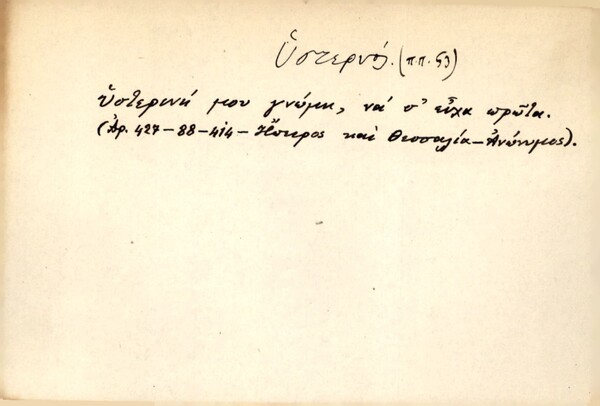 Ὑστερνός. (ππ. 53)
Ὑστερινή μου γνώμη, νά σ' εἶχα πρῶτα.
(Ἀρ. 427-88-414-Ἤπειρος καί Θεσσαλία-Ἀνώνυμος).